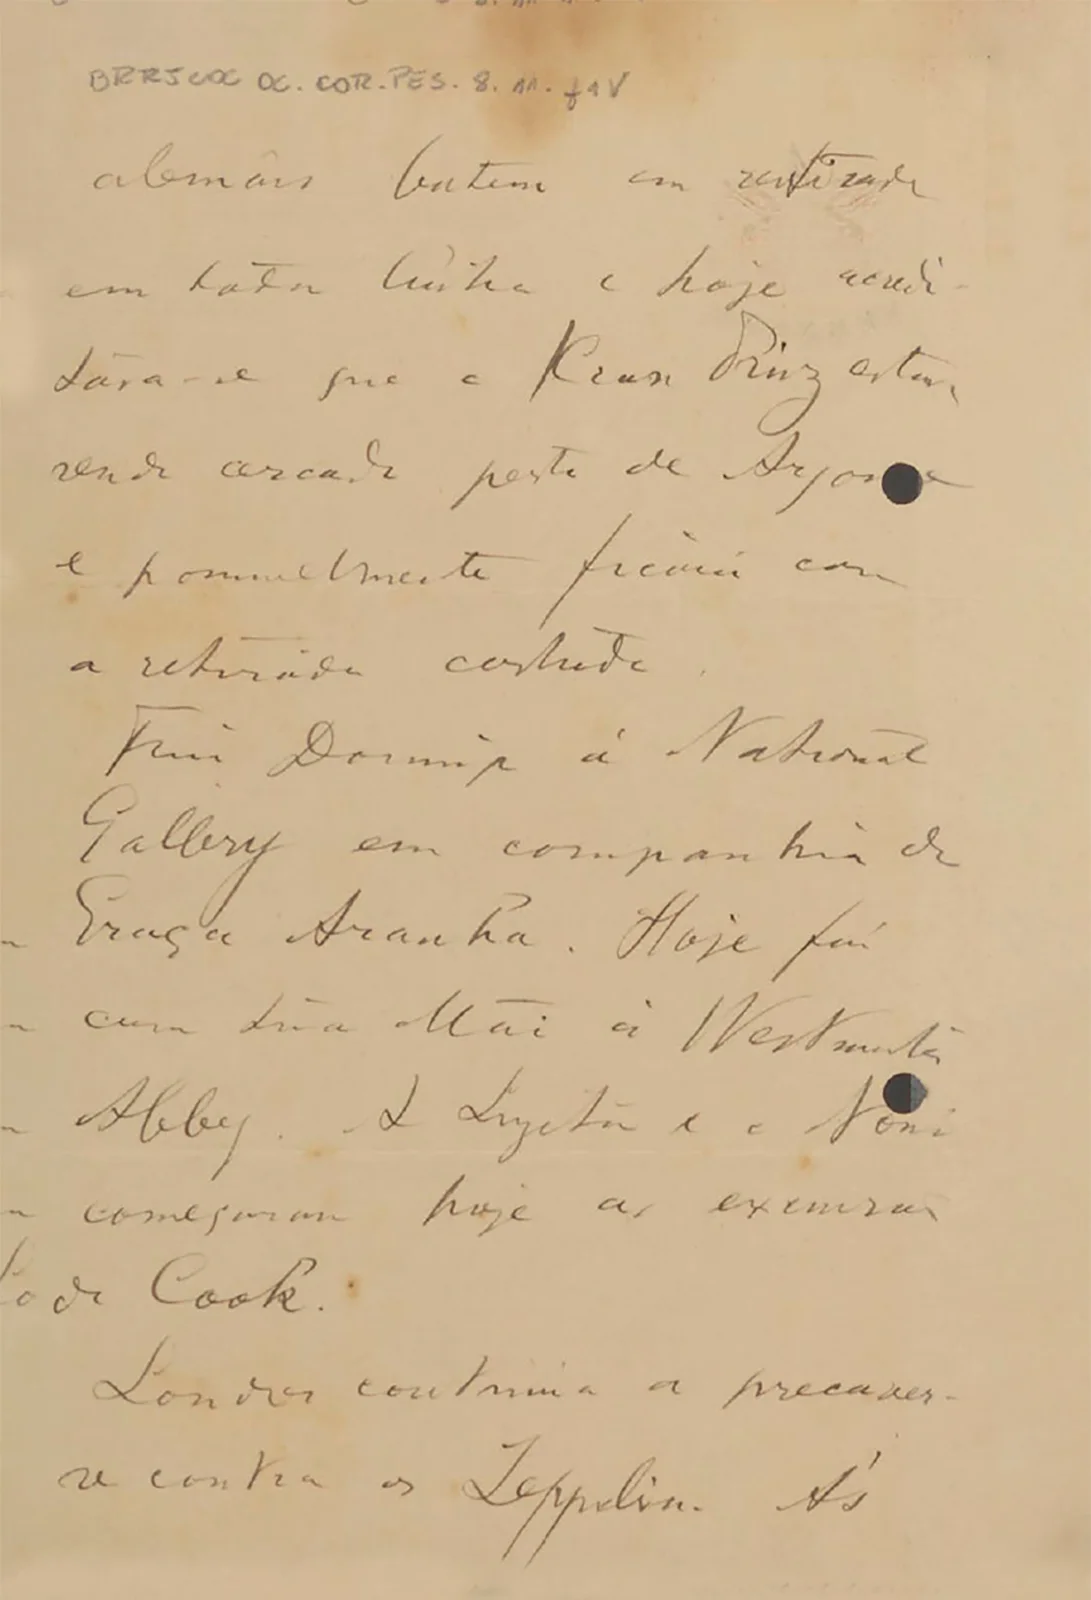 BRRJCOC OC. COR. PES. 8. 11. f1V
alemães batem em retirada
em toda linha e hoje acredi-
tára-se que o Kron Prinz estava
sendo cercado perto de Argonne
e possivelmente ficará com
a retirada cortada.
Fui Domingo á National
Gallery em companhia de
Graça Aranha. Hoje fui
com tua Mãi á Westminster
Abbey. A Lizeta e o Noni
começaram hoje as excursões
do Cook.
Londres continúa a precaver-
se contra os Zeppelin. Ás